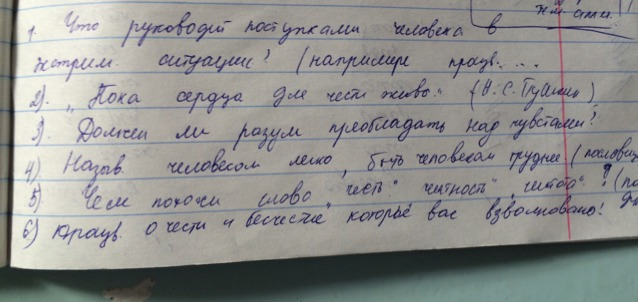 1. Что руководит поступками человека в
экстрим. ситуации? (например произв....
2). "Пока сердца для чести живы" (А.С. Пушкин)
3). Должен ли разум преобладать над чувствами?
4) Назыв. человеком легко, быть человеком труднее (пословица
5). Чем похожи слово "честь" "честность", ?
6) произв. о чести и бесчестие которые вас взволновано!